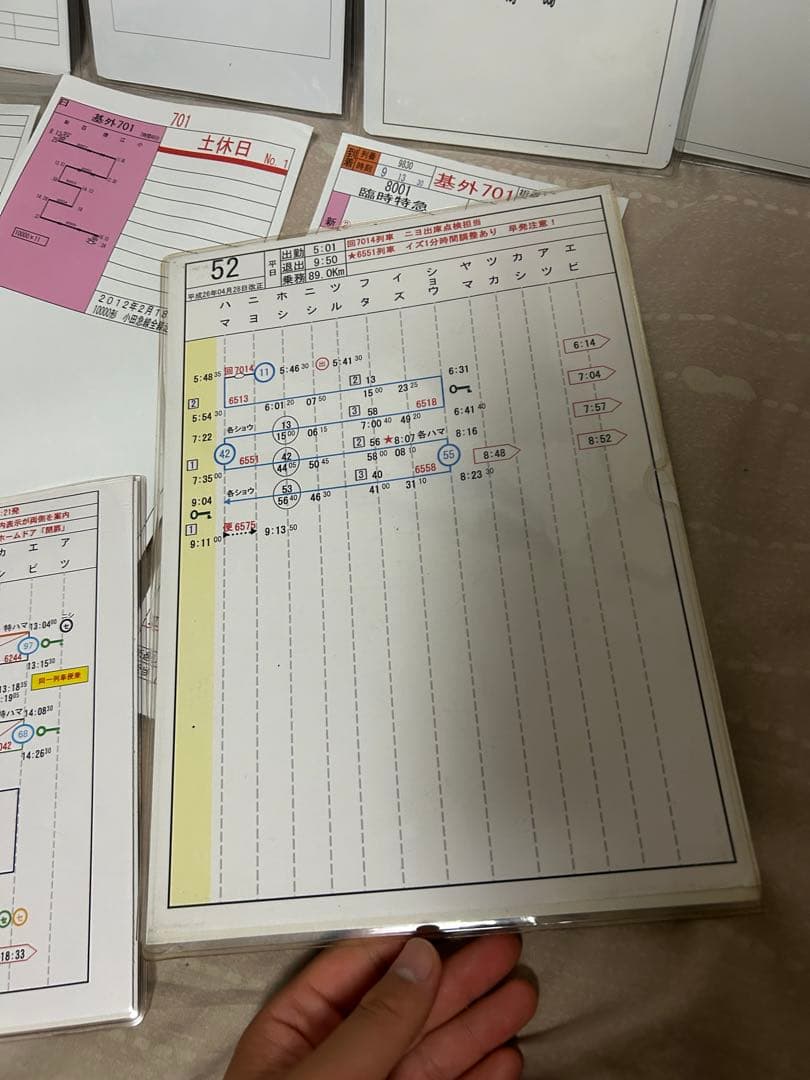 基外701
701
土休日
No.1
10000×11
2012年2月18
10000形 小田急線全線
列番
時刻
9830
9 13 30
8001
臨時特急
基外701
新
52
平日
出勤 5:01
退出 9:50
乗務 89.0Km
回7014列車 ニヨ出庫点検担当
★6551列車 イズ1分時間調整あり 早発注意!
平成26年04月28日改正
ハマ ニヨ ホシ ニシ ツル フタ イズ ショウ ヤマ ツカ カシ アツ エビ
6:14
5:48 35 回7014 11 5:46 30 出 5:41 30
2 13 6:31
7:04
2 6513 15 00 23 25
5:54 30 6:01 20 07 50 3 58 6518
7:57
7:22 各ショウ 13 7:00 40 49 20 6:41 40
15 00 06 15 2 56 ★8:07 各ハマ 8:16
8:52
1 42 6551 42 58 00 08 10 55 8:48
7:35 00 44 05 50 45 3 40 6558
9:04 各ショウ 53 41 00 31 10 8:23 30
56 40 46 30
1 便6575
9:11 00 9:13 50
:21発
内表示が両側を案内
ホームドア「閉扉」
カシ エビ アツ
特ハマ 13:04 00
97
6244
13:15 30
13:18 35
:19 05
同一列車便乗
特ハマ 14:08 30
68
042
14:26 30
18:33